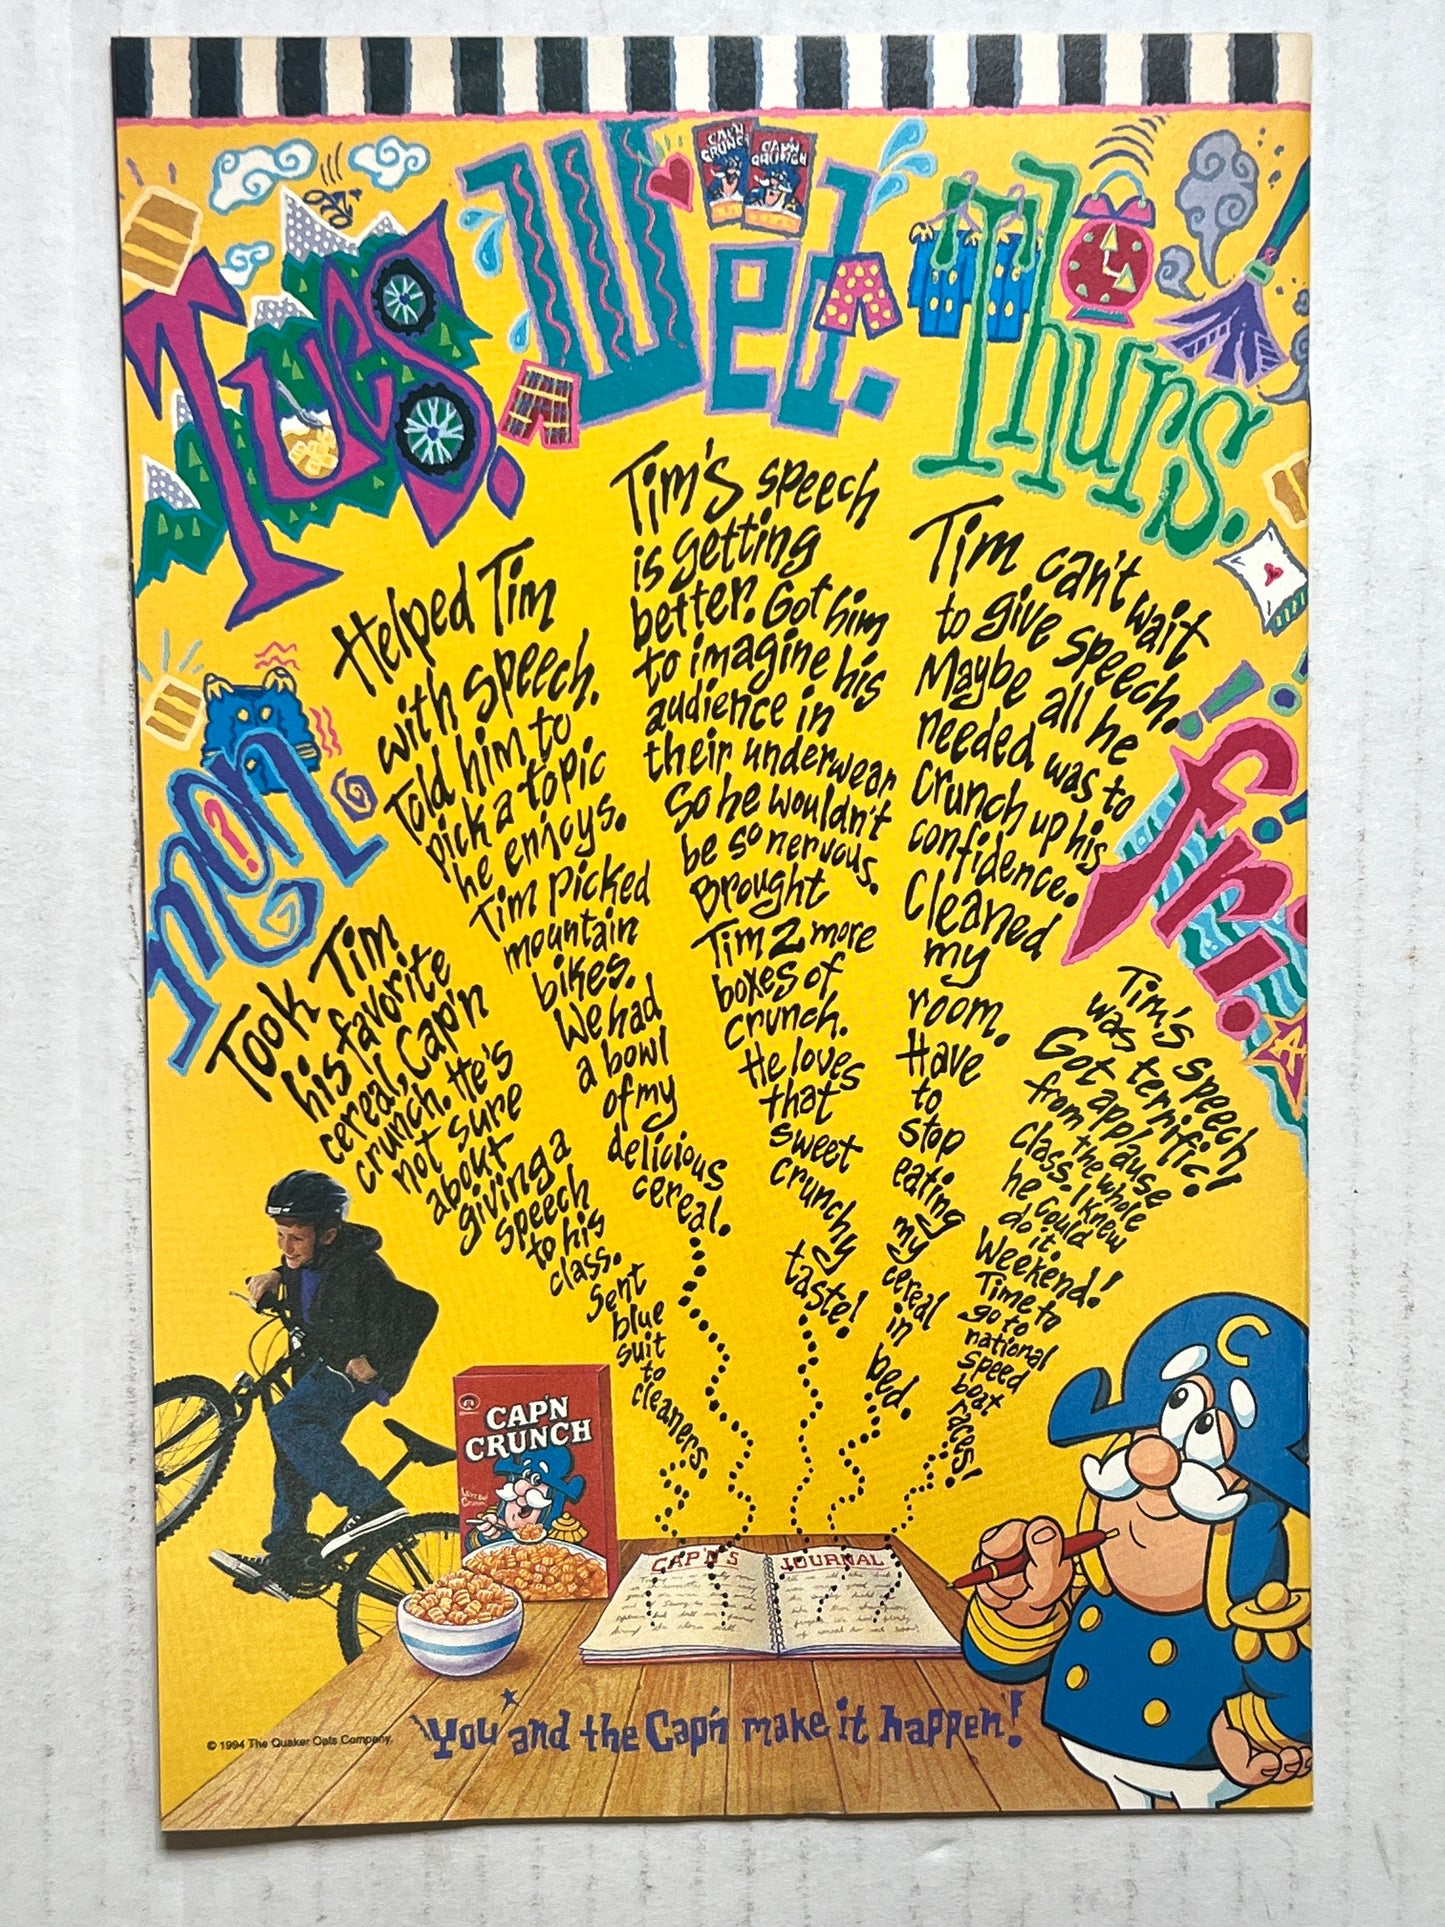 Mon.
Took Tim
his favorite
cereal, Cap'n
crunch. He's
not sure
about
giving a
speech
to his
class.
Sent
blue
suit
to
cleaners.
Tues.
Helped Tim
with speech.
Told him to
pick a topic
he enjoys.
Tim picked
mountain
bikes.
We had
a bowl
of my
delicious
cereal.
Wed.
CAP'N
CRUNCH
CAP'N
CRUNCH
Tim's speech
is getting
better. Got him
to imagine his
audience in
their underwear
so he wouldn't
be so nervous.
Brought
Tim 2 more
boxes of
crunch.
He loves
that
sweet
crunchy
taste!
Thurs.
Tim can't wait
to give speech.
Maybe all he
needed was to
crunch up his
confidence.
Cleaned
my
room.
Have
to
stop
eating
my
cereal
in
bed.
fri.
Tim's speech
was terrific!
Got applause
from the whole
class. I knew
he could
do it.
Weekend!
Time to
go to
national
speed
boat
races!
CAP'N
CRUNCH
CAP'N'S JOURNAL
C
You and the Cap'n make it happen!
© 1994 The Quaker Oats Company.